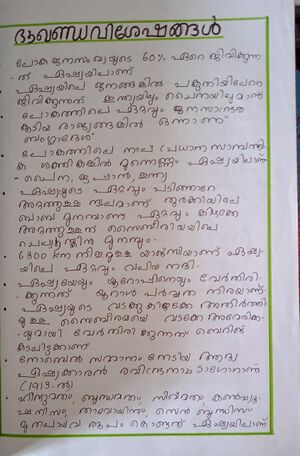 ഭൂഖണ്ഡവിശേഷങ്ങൾ
ലോക ജനസംഖ്യയുടെ 60% ഏറെ ജീവിക്കുന്ന-
ത് ഏഷ്യയിലാണ്
ഏഷ്യയിലെ ജനങ്ങളിൽ പകുതിയിലേറെ
ജീവിക്കുന്നത് ഇന്ത്യയിലും ചൈനയിലുമാണ്
ലോകത്തിലെ ഏറ്റവും ജനസാന്ദ്രത
കൂടിയ രാജ്യങ്ങളിൽ ഒന്നാണ്
ബംഗ്ലാദേശ്
ലോകത്തിലെ നാല് പ്രധാന സാമ്പത്തി
ക ശക്തികളിൽ മൂന്നെണ്ണം ഏഷ്യയിലാണ്
- ചൈന, ജപ്പാൻ, ഇന്ത്യ
ഏഷ്യയുടെ ഏറ്റവും പടിഞ്ഞാറേ
അറ്റത്തുള്ള സ്ഥലമാണ് തുർക്കിയിലെ
ബാബ മുനമ്പാണ്. ഏറ്റവും കിഴക്കേ
അറ്റത്തുള്ളത് സൈബീരിയയിലെ
ചെല്യൂസ്കിൻ മുനമ്പും.
6300 km നീളമുള്ള യാങ്സിയാണ് ഏഷ്യ-
യിലെ ഏറ്റവും വലിയ നദി.
ഏഷ്യയേയും യൂറോപ്പിനെയും വേർതിരി-
ക്കുന്നത് യൂറാൾ പർവ്വത നിരയാണ്.
ഏഷ്യയുടെ വടക്കുകിഴക്കേ അതിർത്തി
യുള്ള സൈബീരയെ വടക്കേ അമേരിക്ക-
യുമായി വേർതിരിക്കുന്നതും ബെറിങ്
കടലിടുക്കാണ്
നോബെൽ സമ്മാനം നേടിയ ആദ്യ
ഏഷ്യക്കാരൻ രവീന്ദ്രനാഥ ടാഗോറാണ്
(1913-ൽ)
ഹിന്ദുമതം, ബുദ്ധമതം, സിഖ്മതം, കൺഫ്യൂ-
ഷനിസം, താവോയിസം, സെൻ ബുദ്ധിസം
മുതലായവ രൂപം കൊണ്ടത് ഏഷ്യയിലാണ്